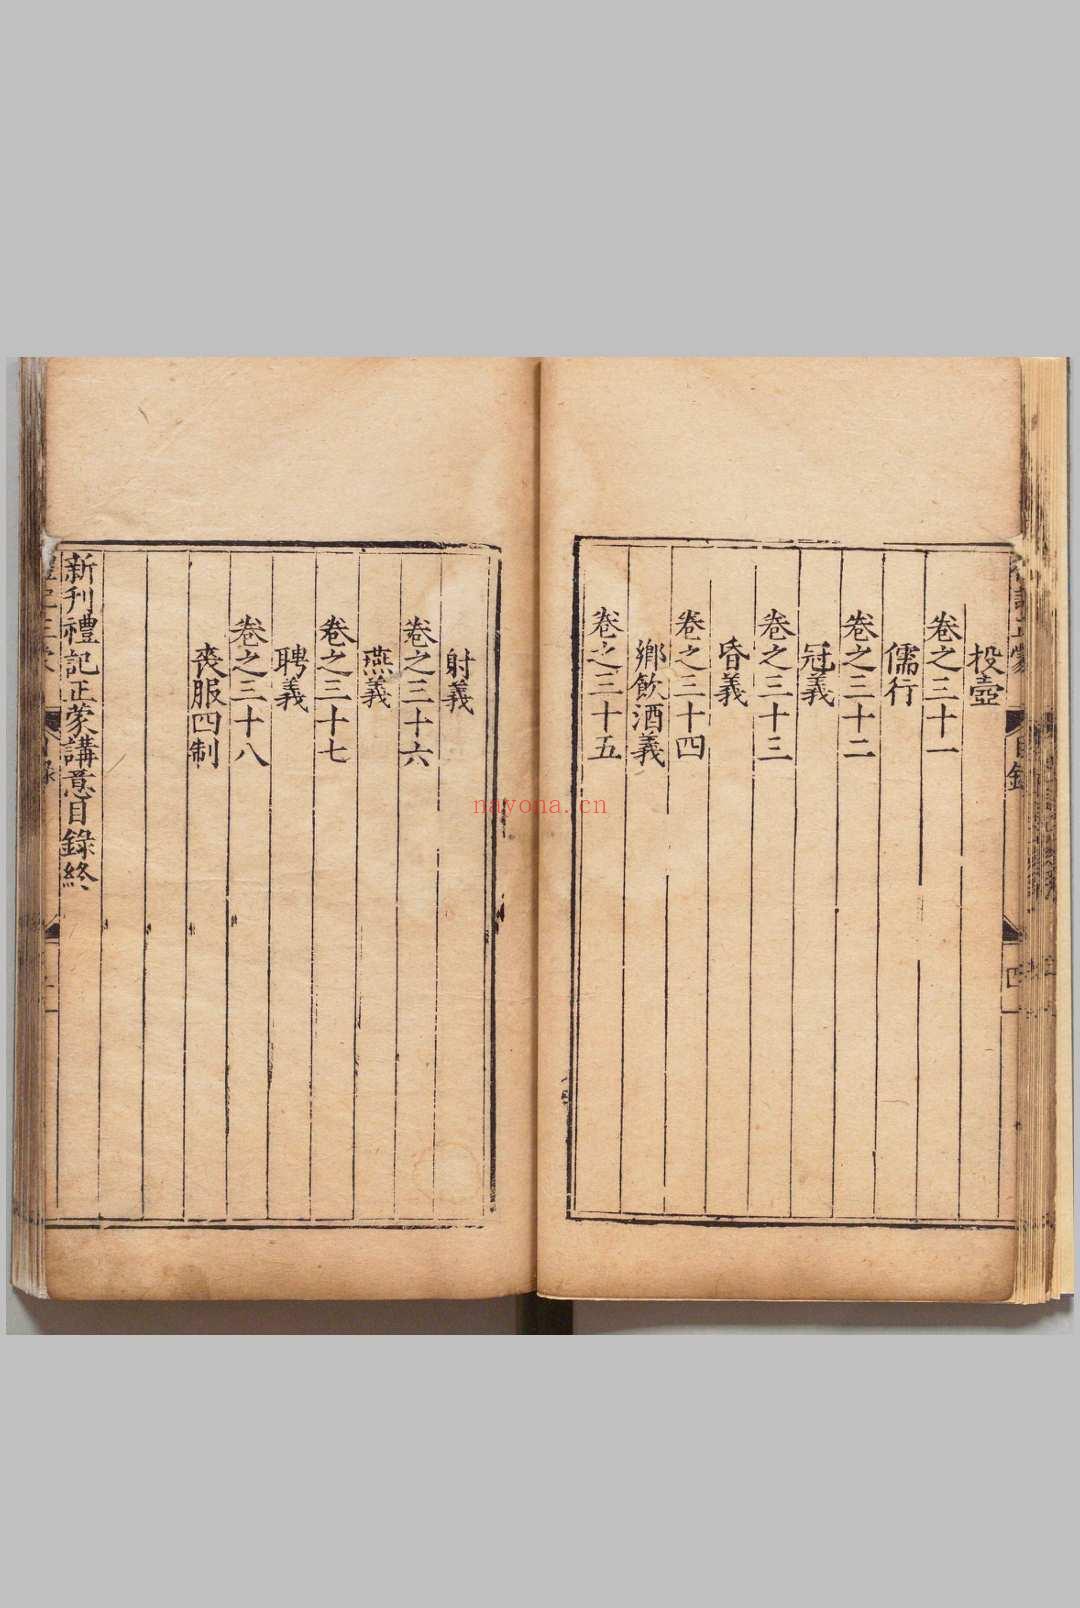 投壺
卷之三十一
儒行
卷之三十二
冠義
卷之三十三
昏義
卷之三十四
鄉飲酒義
卷之三十五
射義
卷之三十六
燕義
卷之三十七
聘義
卷之三十八
喪服四制
新刊禮記正蒙講意目錄終
目錄
四
nayona.cn